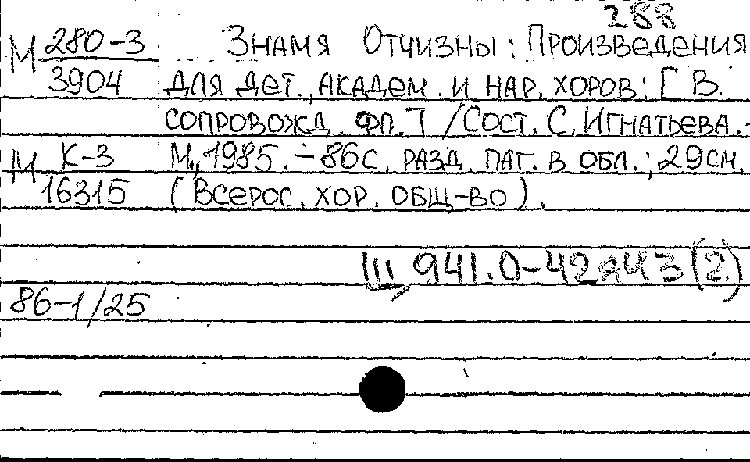 288
М 280-3 Знамя Отчизны: Произведения
3904 для дет., академ. и нар. хоров: [В
сопровожд. фп.] / Сост. С. Игнатьева. -
М К-3 М., 1985. - 86 с. разд. паг. в обл.; 29 см.
16315 (Всерос. хор. общ-во).
III 941.0-42
(2)
86-1/25